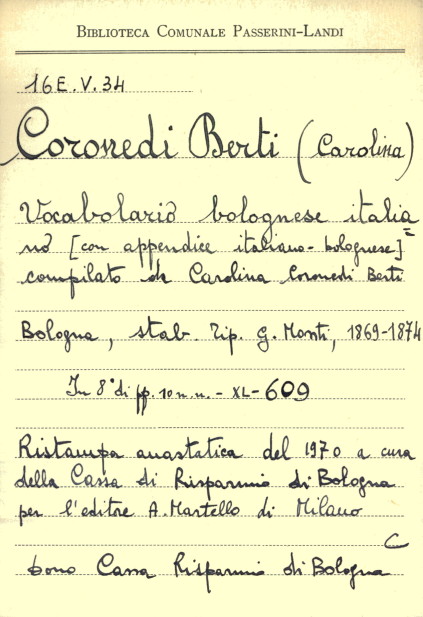 BIBLIOTECA COMUNALE PASSERINI-LANDI
16E.V.34
Coronedi Berti (Carolina)
Vocabolario bolognese italia=
no [con appendice italiano-bolognese]
compilato da Carolina Coronedi Berti
Bologna, stab. tip. G. Monti, 1869-1874
In 8° di pp. 10 n.n. - XL - 609
Ristampa anastatica del 1970 a cura
della Cassa di Risparmio di Bologna
per l'editore A. Martello di Milano
C
Dono Cassa Risparmio di Bologna